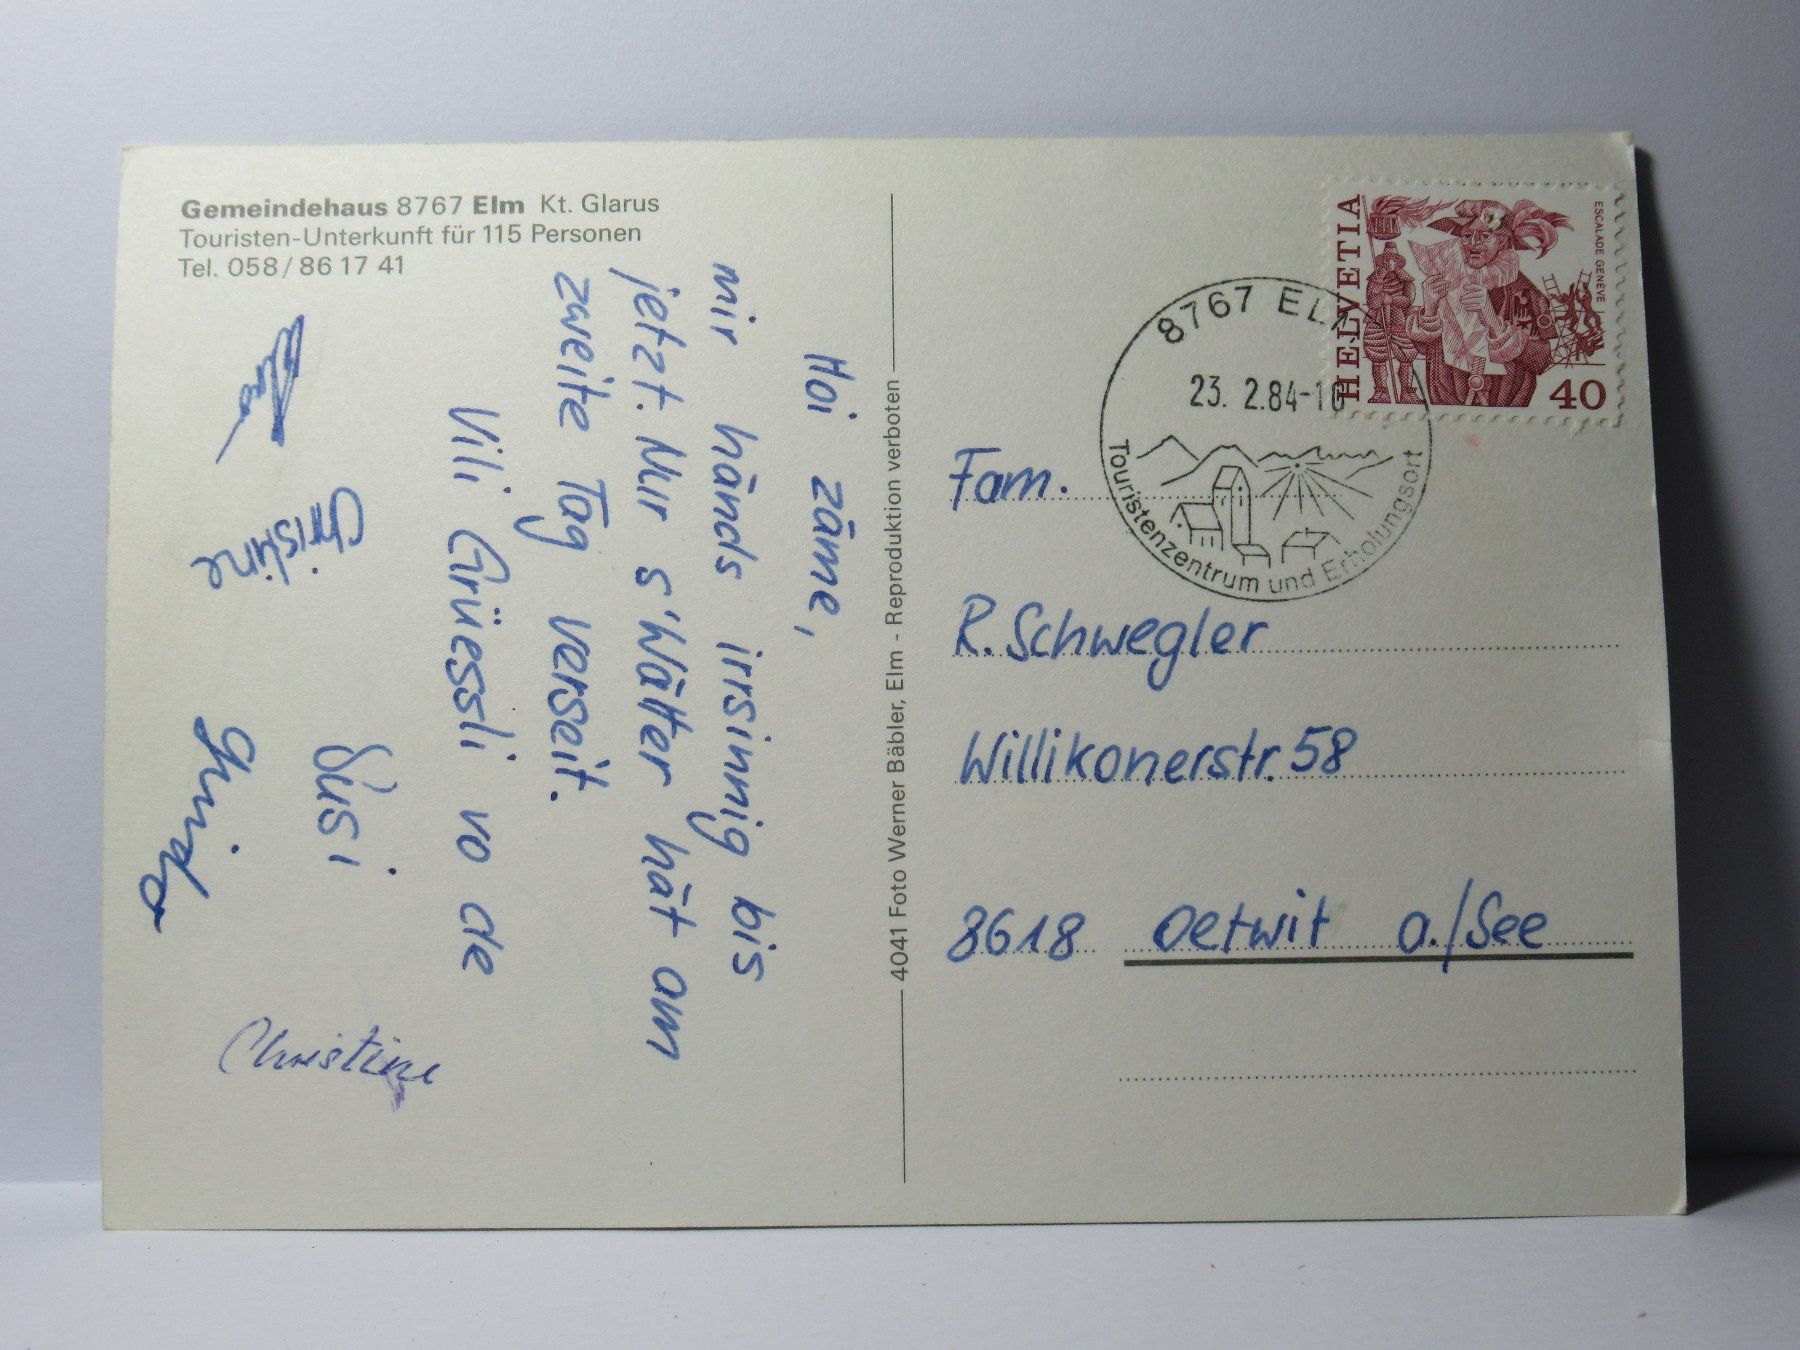 Gemeindehaus 8767 Elm Kt. Glarus
Touristen-Unterkunft für 115 Personen
Tel. 058/86 17 41
Hoi zäme,
mir händs irrsinnig bis
jetzt. Nur s'Wätter hät am
zweite Tag verseit.
Vili Grüessli vo de
Christine
Susi
Guido
Christine
4041 Foto Werner Bäbler, Elm - Reproduktion verboten
HELVETIA
ESCALADE GENÈVE
40
8767 ELM
23. 2.84-1
Touristenzentrum und Erholungsort
Fam.
R. Schwegler
Willikonerstr. 58
8618 Oetwil a./See